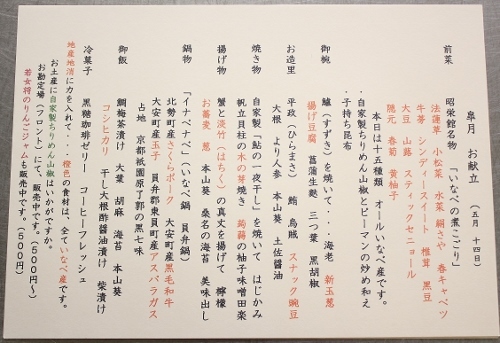 皐月 お献立 （五月 十四日）
前菜 昭栄館名物 「いなべの煮こごり」
法蓮草 小松菜 水菜 絹さや 春キャベツ
牛蒡 シンディースイート 椎茸 黒豆
大豆 山蕗 スティックセニョール
隠元 春菊 黄柚子
本日は十五種類 オールいなべ産です。
・自家製ちりめん山椒とピーマンの炒め和え
・子持ち昆布
御椀 鱸（すずき）を焼いて・・・ 海老 新玉葱
揚げ豆腐 菖蒲生麩 三つ葉 黒胡椒
お造里 平政（ひらまさ） 鮪 烏賊 スナック豌豆
大根 より人参 本山葵 土佐醤油
焼き物 自家製「鮎の一夜干し」を焼いて はじかみ
帆立貝柱の木の芽焼き 蒟蒻の柚子味噌田楽
揚げ物 蟹と淡竹（はちく）の真丈を揚げて 檸檬
お蕎麦 葱 本山葵 桑名の海苔 美味出し
鍋物 「イナベナベ」（いなべ鍋 員弁鍋）
北勢町産さくらポーク 大安町産黒毛和牛
大安町産玉子 員弁郡東員町産アスパラガス
占地 京都祇園原了郭の黒七味
御飯 鯛梅茶漬け 大葉 胡麻 海苔 本山葵
コシヒカリ 干し大根酢醤油漬け 柴漬け
冷菓子 黒糖珈琲ゼリー コーヒーフレッシュ
地産地消に力を入れて・・・橙色の食材は、全ていなべ産です。
お土産に自家製ちりめん山椒はいかがですか。
お勘定場（フロント）にて、販売中です。（５００円～）
若女将のりんごジャムも販売中です。（５００円）